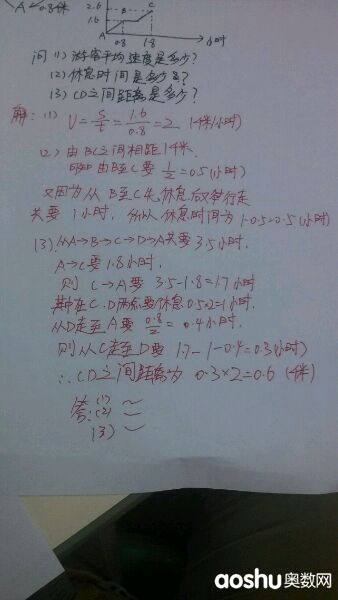 A 0.8千米
2.6 B C
1.6
A 0.8 1.8 小时
问 (1) 游客平均速度是多少?
(2) 休息时间是多少?
(3) CD之间距离是多少?
解: (1) V = S/t = 1.6/0.8 = 2 (千米/小时)
(2) 由BC之间相距1千米.
可知由B至C要 1/2 = 0.5 (小时)
又因为从B至C先休息后又步行走
共要1小时, 所以休息时间为 1-0.5=0.5 (小时)
(3) 从A→B→C→D→A共要3.5小时.
A→C要1.8小时.
则 C→A要 3.5-1.8=1.7小时
其中在C.D两点要休息0.5×2=1小时.
从D走至A要 0.8/2 = 0.4小时.
则从C走至D要 1.7-1-0.4=0.3(小时)
∴CD之间距离为 0.3×2=0.6 (千米)
答: (1) ~
(2) ~
(3) ~
aoshu奥数网